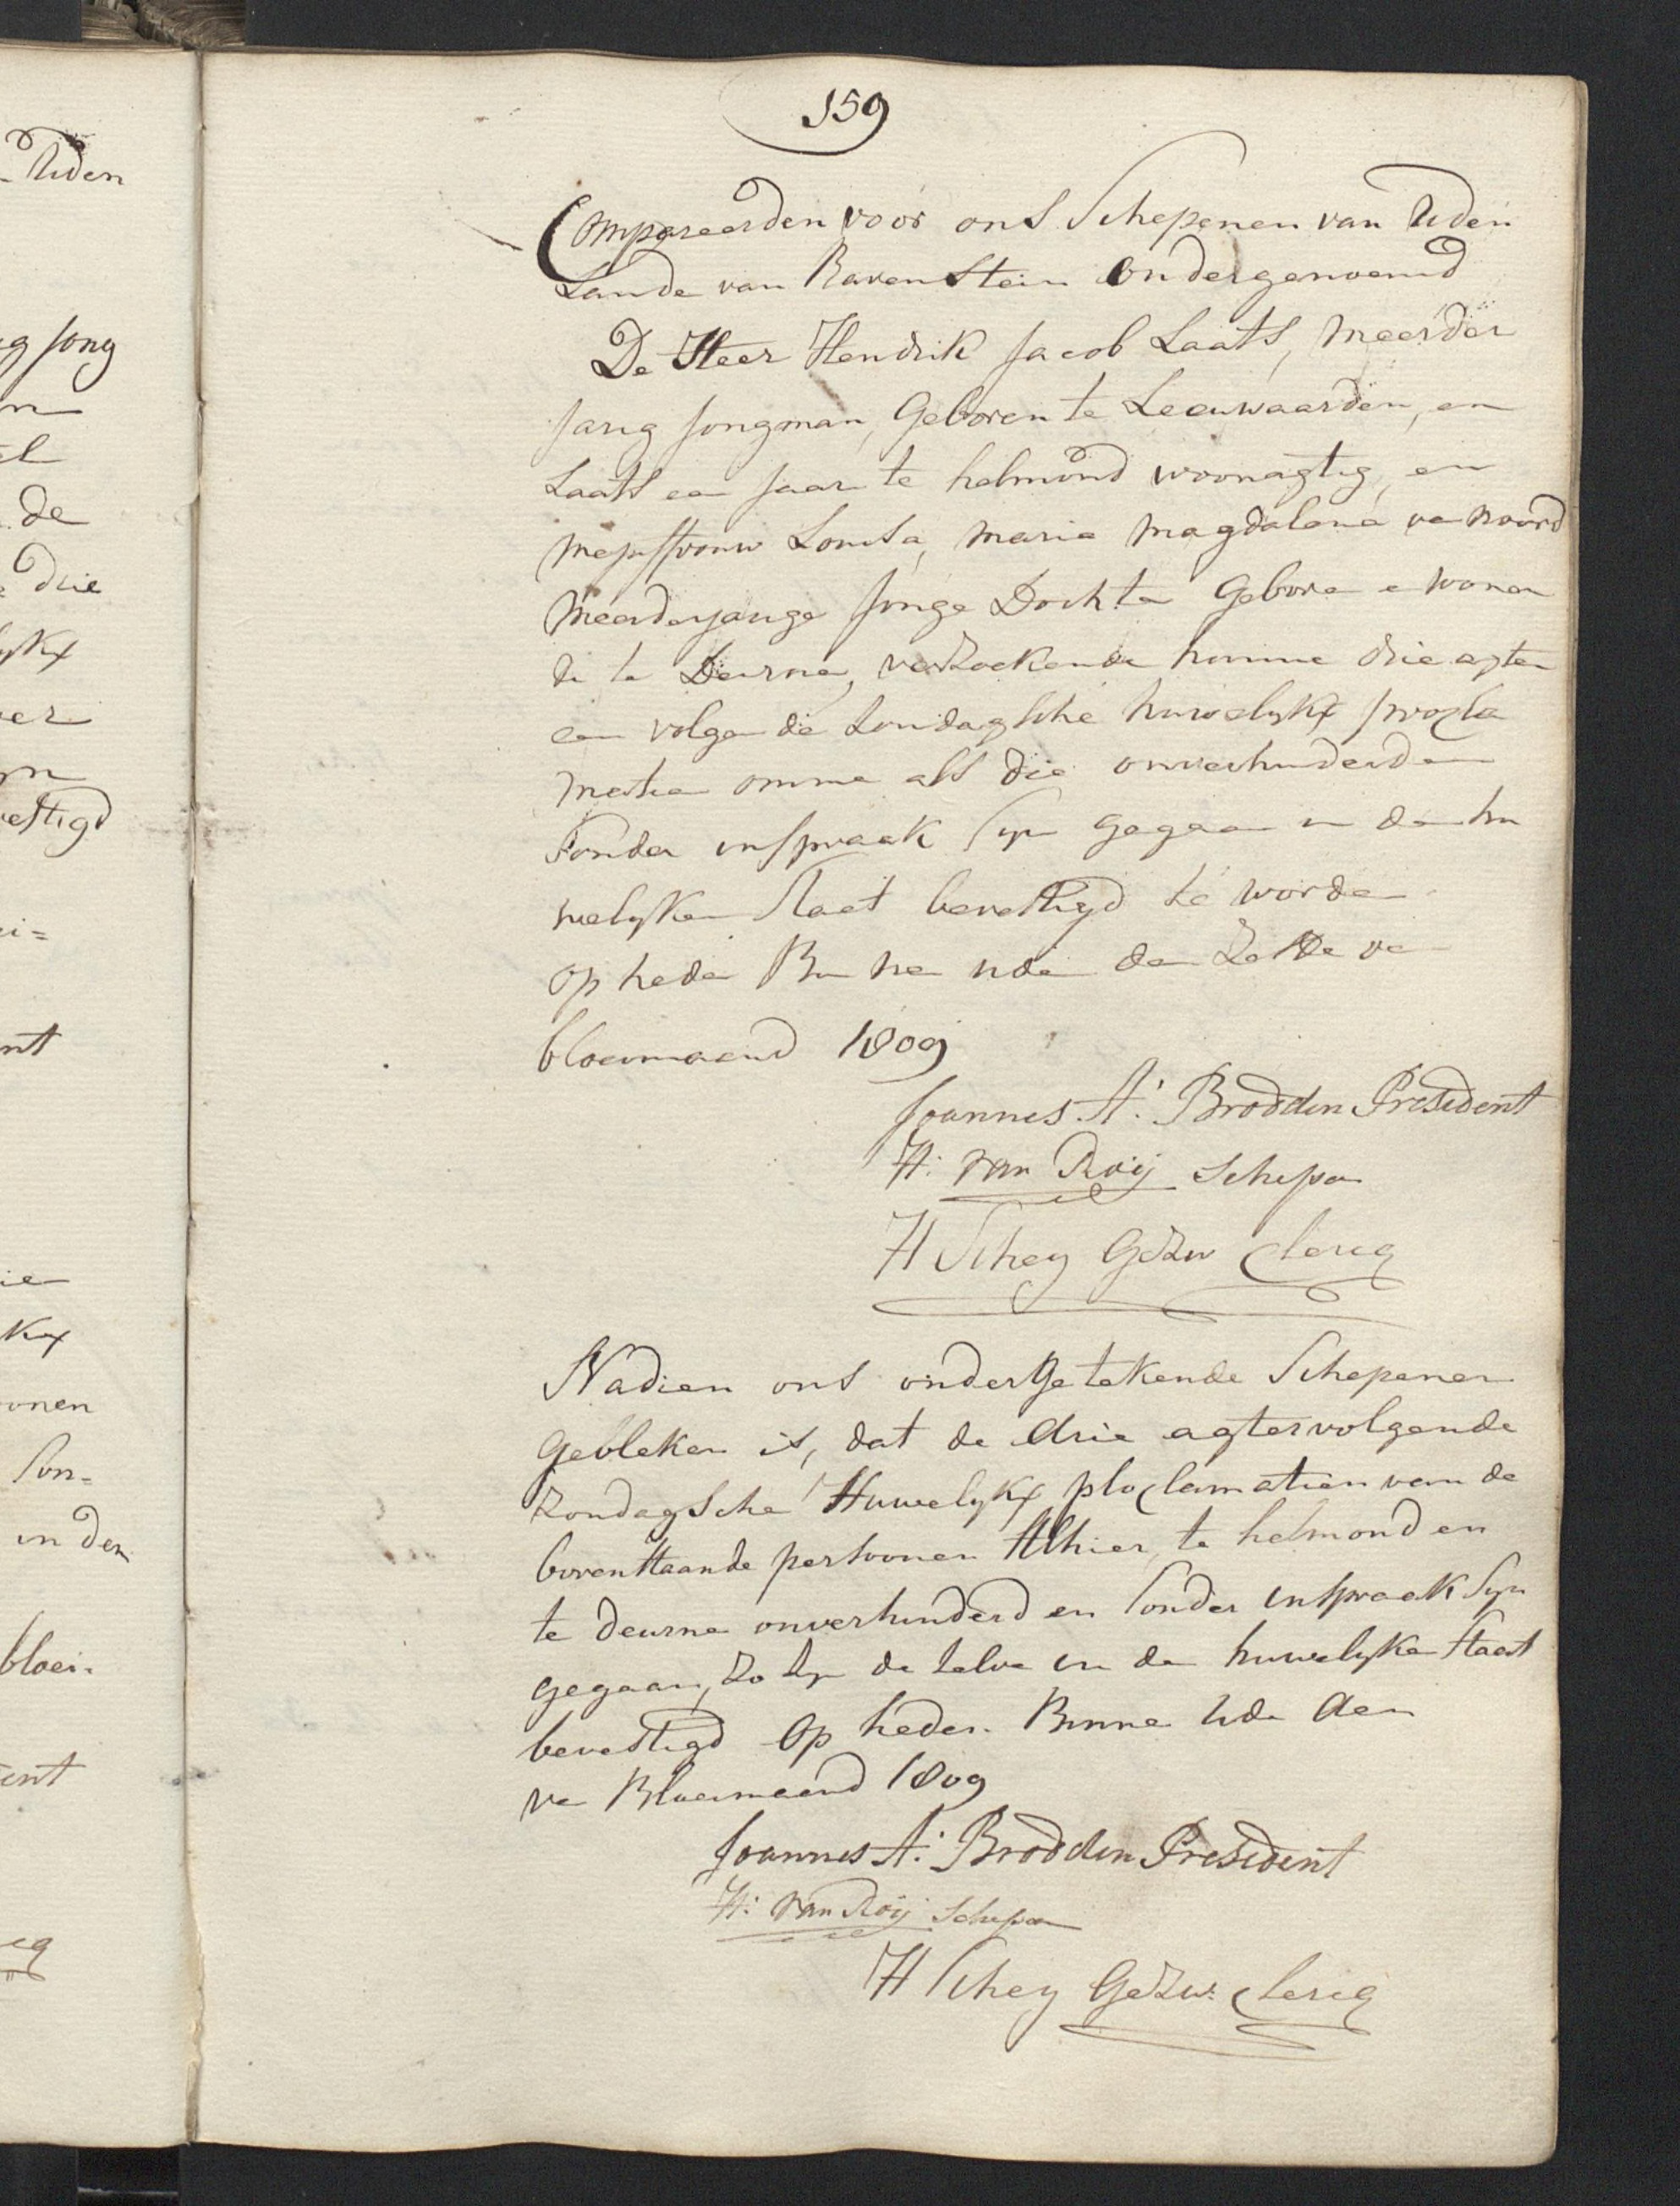 159
Uden
Compareerden voor ons Schepenen van Uden
Lande van Ravenstein Ondergenoemd
De Heer Hendrik Jacob Laats, Meerder
Jarig Jongman, Geboren te Leeuwaarden, en
Laatst een Jaar te helmond woonagtig, en
Mejuffrouw Louisa, Maria Magdalena van Noord
Meerderjarige Jonge Dochter Geboren en Wonen
de te Deurne, verzoekende hunne drie agter
een volgende Zondagsche huwelykx procla
matien omme als die onverhinderd en
Sonder inspraak syn gegaan in den hu
welyken Staat bevestigd te worden
Op heden Binnen uden den Zesde van
bloeimaand 1809
Joannes A: Brodden President
H: van Roij Schepen
H Schey Gezw Clercq
Nadien ons ondergetekende Schepenen
Gebleken is, dat de drie agtervolgende
Zondagsche Huwelykx ploclamatien van de
bovenstaande persoonen Alhier, te helmond en
te deurne onverhinderd en Sonder inspraak Syn
gegaan, Zo Zyn de Zelve in den huwelyken Staat
bevestigd Op heden Binnen Uden den
van Bloeimaand 1809
Joannes A: Brodden President
H: van Roij Schepen
H Schey Gezw: Clercq